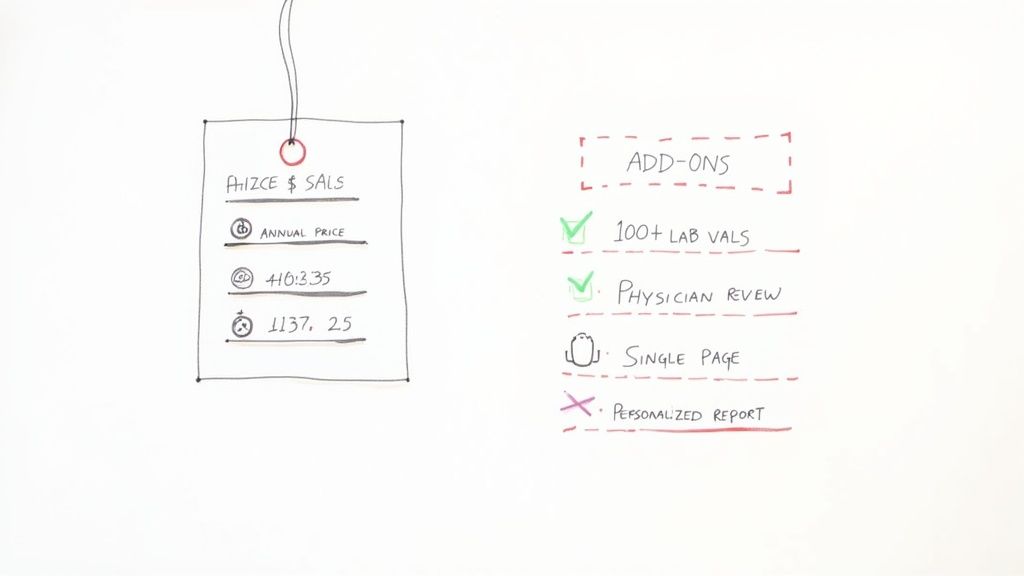 $ SALS
ANNUAL PRICE
1137. 25
ADD-ONS
100+ LAB VALS
PHYSICIAN REVEW
SINGLE PAGE
PERSONALIZED REPORT